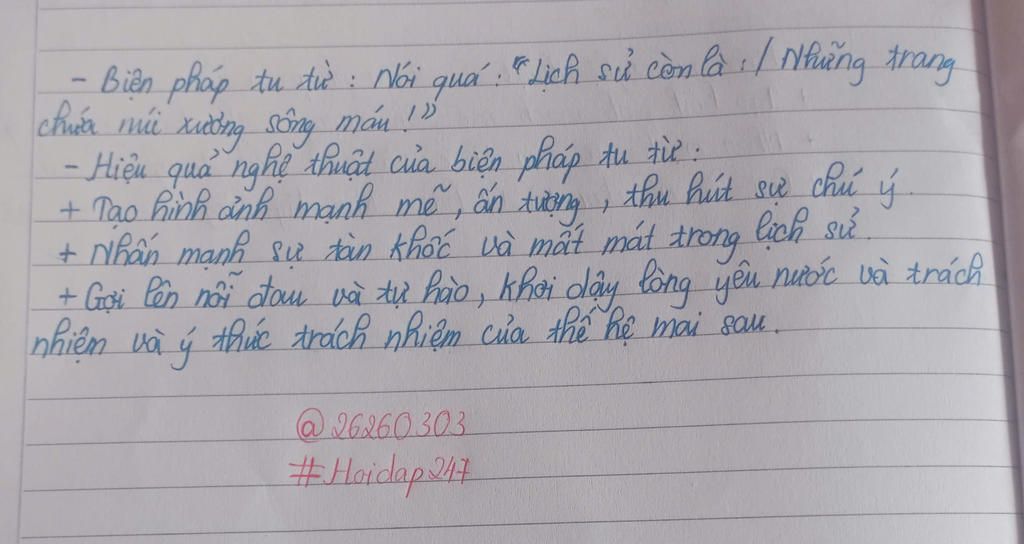 - Biện pháp tu từ : Nói quá : "Lịch sử còn là : / Những trang
chứa núi xương sông máu !"
- Hiệu quả nghệ thuật của biện pháp tu từ :
+ Tạo hình ảnh mạnh mẽ, ấn tượng, thu hút sự chú ý.
+ Nhấn mạnh sự tàn khốc và mất mát trong lịch sử.
+ Gợi lên nỗi đau và tự hào, khơi dậy lòng yêu nước và trách
nhiệm và ý thức trách nhiệm của thế hệ mai sau.
@26260303
#Hoidap247